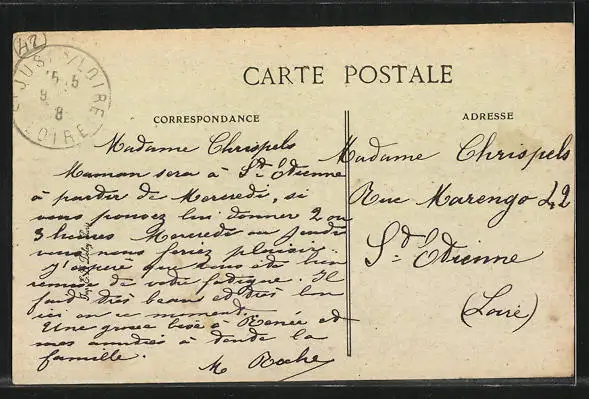 42
ST JUST S/LOIRE
15·5
9
8
LOIRE
CARTE POSTALE
CORRESPONDANCE
ADRESSE
Madame Chrispels
Maman sera à St Etienne
à partir de Mercredi, si
vous pouvez lui donner 2 ou
3 heures Mercredi ou Jeudi
vous nous feriez plaisir.
J'espère que vous êtes bien
remise de votre fatigue. Il
fait très beau et très bon
ici en ce moment.
Une grosse bise à Renée et
mes amitiés à toute la
famille.
M Roche
Madame Chrispels
Rue Marengo 42
St Etienne
(Loire)